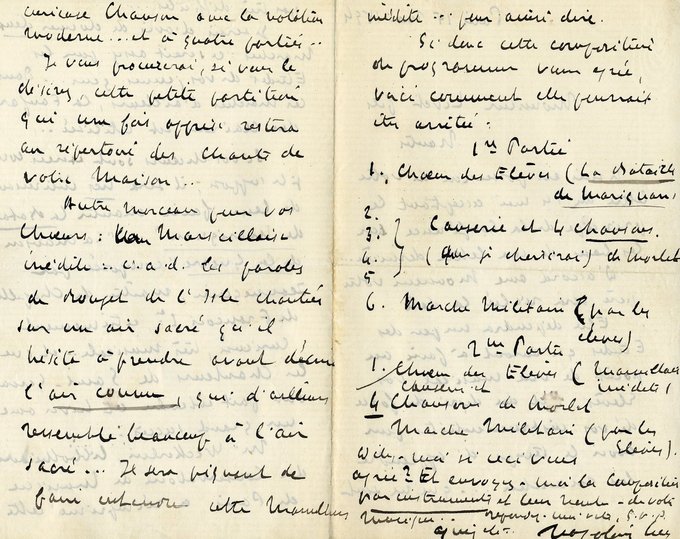 curieuse Chanson avec la notation
moderne... et à quatre parties..
Je vous procurerai, si vous le
désirez, cette petite partition
qui une fois apprise restera
au répertoire des Chants de
votre Maison...
Autre morceau pour vos
Chœurs : La Marseillaise
inédite.. c. a. d. les paroles
de Rouget de l'Isle chantées
sur un air sacré qu'il
hésita à prendre avant
l'air connu, qui d'ailleurs
ressemble beaucoup à l'air
sacré... Je sera de
faire entendre cette Marseillaise
inédite... pour ainsi dire.
Si donc cette composition
de programme vous agrée,
voici comment elle pourrait
être arrêtée :
1re Partie
1. Chœur des Elèves (La Bataille
de Marignan)
2.
3. Causerie et 4 chansons.
4. (que je choisirai) de Morlet
5
6. Marche Militaire (par les
élèves)
2me Partie
1. Chœur des Elèves (Marseillaise
inédite)
causerie et
4 Chansons de Morlet
Marche Militaire (par les
Elèves).
Dites-moi si ceci vous
agrée? Et envoyez-moi la Composition
par instruments et leur de votre
musique... répondez-moi vite, s.v.p.